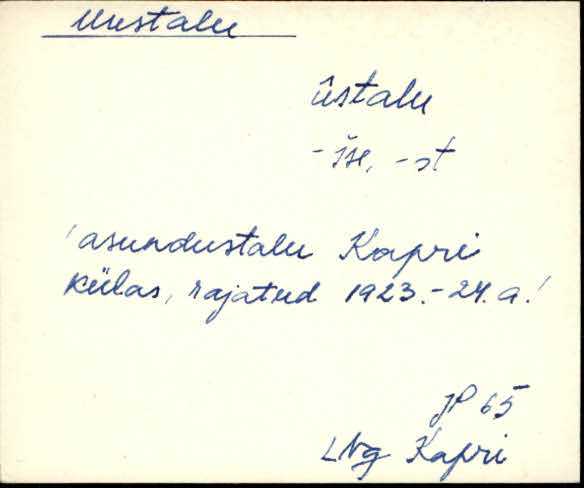 Uustalu
ũstalu
-s̆se, -st
'asundustalu Kapri
külas, rajatud 1923.-24.a.'
JP 65
LNg Kapri